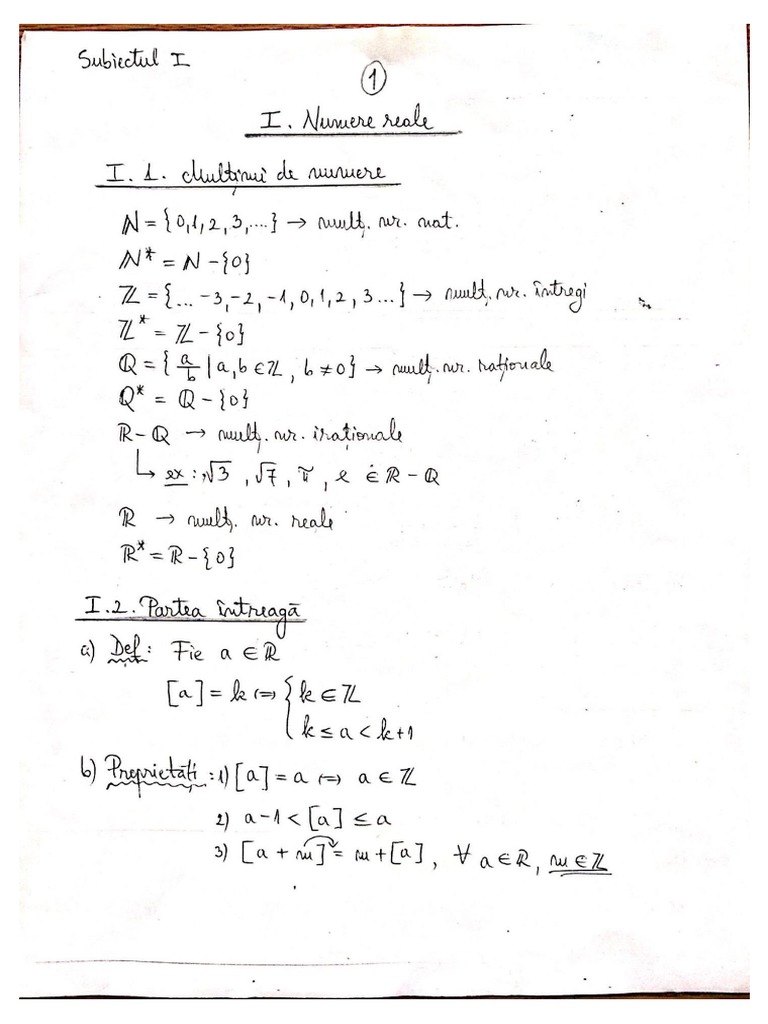 Subiectul I
1
I. Numere reale
I. 1. Mulțimi de numere
ℕ = {0,1,2,3,....} → mulț. nr. nat.
ℕ* = ℕ - {0}
ℤ = {... -3,-2,-1,0,1,2,3...} → mulț. nr. întregi
ℤ* = ℤ - {0}
ℚ = {a/b | a,b ∈ ℤ, b ≠ 0} → mulț. nr. raționale
ℚ* = ℚ - {0}
ℝ-ℚ → mulț. nr. iraționale
↳ ex: √3, √7, π, e ∈ ℝ - ℚ
ℝ → mulț. nr. reale
ℝ* = ℝ - {0}
I.2. Partea întreagă
a) Def: Fie a ∈ ℝ
[a] = k ⇔ { k ∈ ℤ
k ≤ a < k+1
b) Proprietăți: 1) [a] = a ⇔ a ∈ ℤ
2) a-1 < [a] ≤ a
3) [a + m] = m + [a], ∀ a ∈ ℝ, m ∈ ℤ